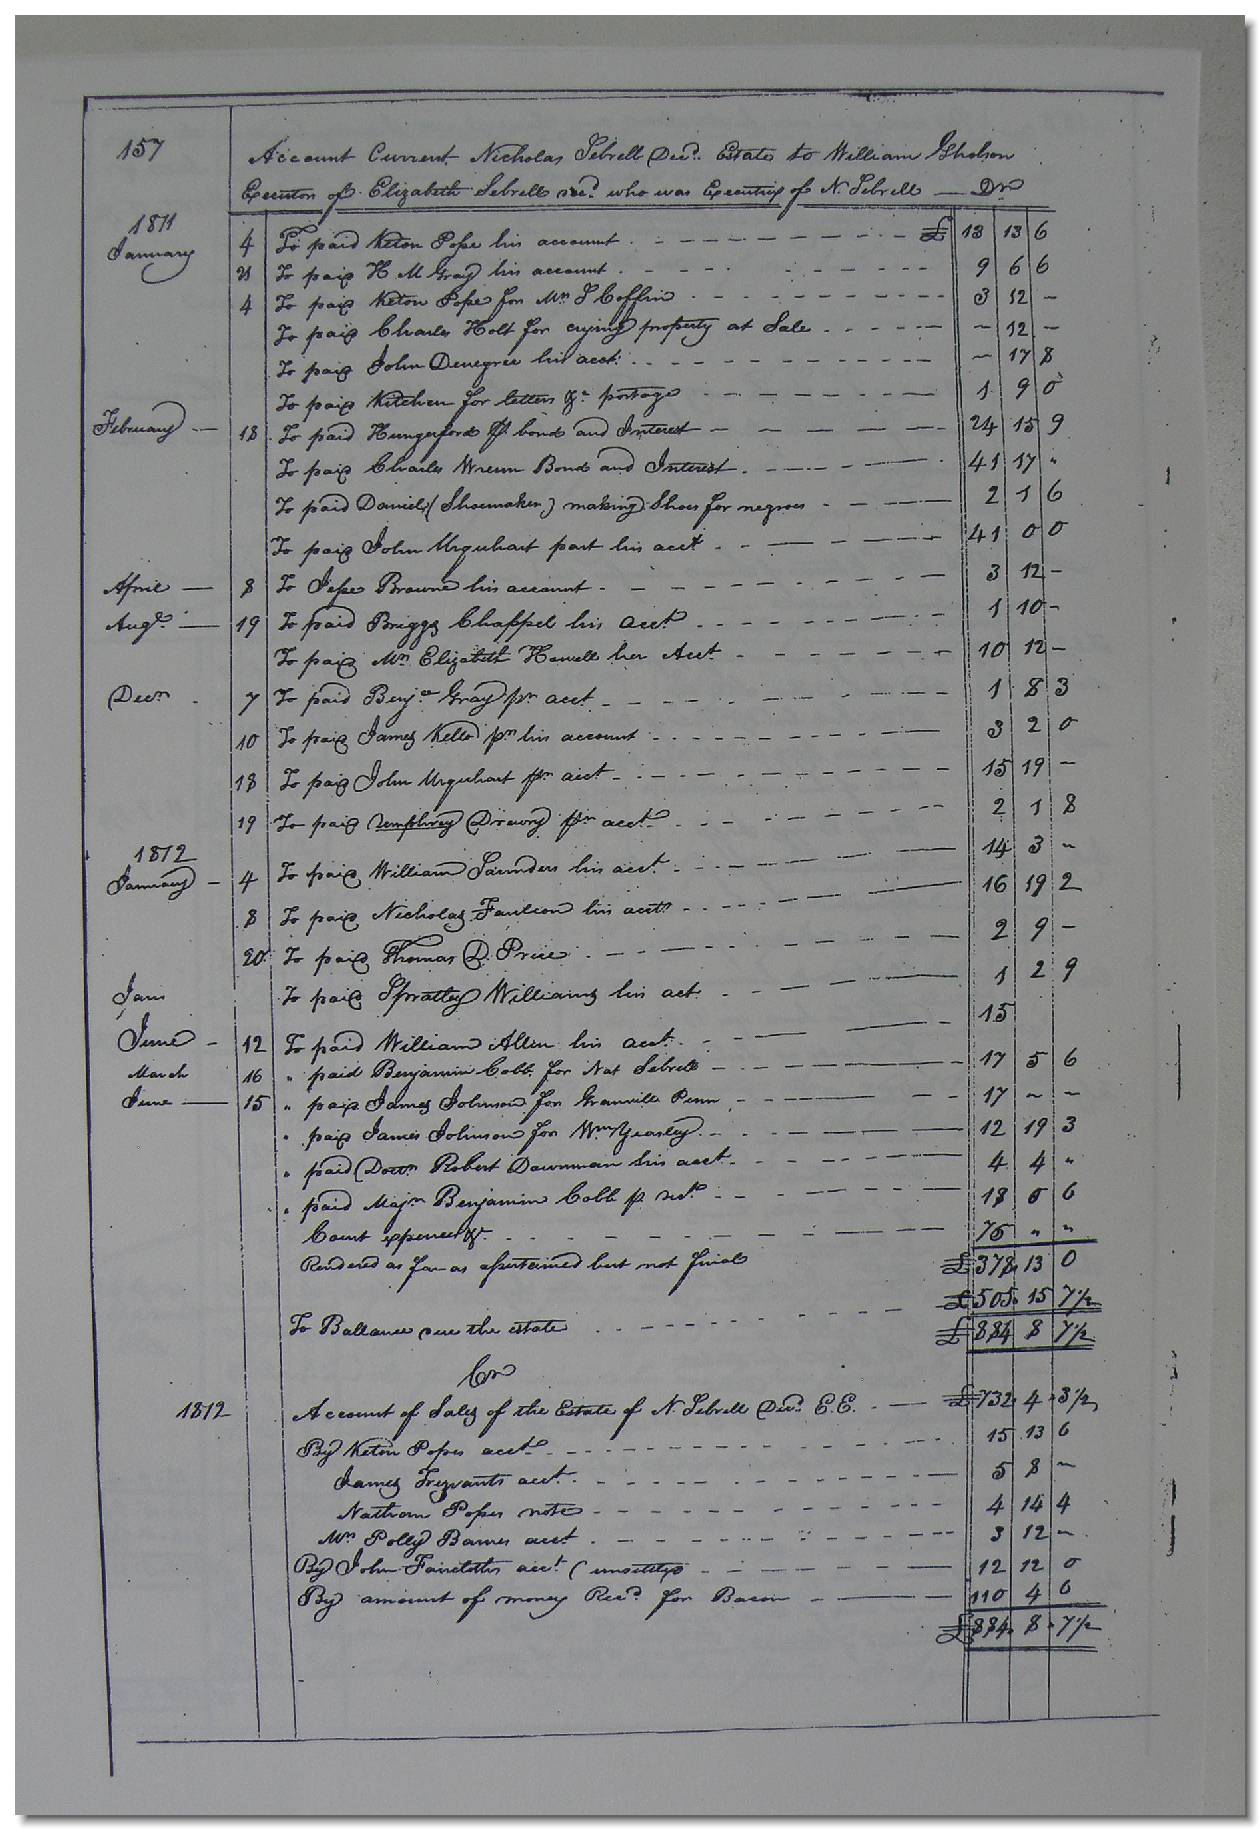 157
Account Current Nicholas Sebrell Decd. Estate to William Gholson
Executor of Elizabeth Sebrell decd. who was Executrix of N. Sebrell — Dr
1811
January 4 To paid Keton Pope his account £ 13 13 6
21 To paid H M Gray his account 9 6 6
4 To paid Keton Pope for Mrs S Coffin 3 12 –
To paid Charles Holt for crying property at Sale – 12 –
To paid John Denegree his acct. – 17 8
To paid Kitchen for letters &c postage 1 9 0
February — 18 To paid Hungerford pr bond and Interest 24 15 9
To paid Charles Wrenn Bond and Interest 41 17 "
To paid Daniel (Shoemaker) making Shoes for negroes 2 1 6
To paid John Urquhart part his acct 41 0 0
April — 8 To Jesse Browne his account 3 12 –
Augt. — 19 To paid Briggs Chappel his acct 1 10 –
To paid Mrs Elizabeth Harvell her Acct 10 12 –
Decr 7 To paid Benja Gray pr acct 1 8 3
10 To paid James Kello pr his account 3 2 0
18 To paid John Urquhart pr acct 15 19 –
19 To paid Umphrey Drewry pr acct 2 1 8
1812
January – 4 To paid William Saunders his acct 14 3 "
8 To paid Nicholas Faulcon his acct 16 19 2
20 To paid Thomas D. Price 2 9 –
Jan To paid Spratley Williams his act 1 2 9
June – 12 To paid William Allen his acct. 15
March 16 " paid Benjamin Cobb for Nat Sebrell 17 5 6
June — 15 " paid James Johnson for Granville Penn 17 – –
" paid James Johnson for Wm Yearsley 12 19 3
" paid Doctr Robert Downman his acct 4 4 "
" paid Majr Benjamin Cobb p. 18 0 6
Court expences &c 75 " "
Rendered as far as assertained but not final £ 378 13 0
£505 15 7½
To Ballance due the estate £884 8 7½
Cr
1812 Account of Sales of the Estate of N. Sebrell Decd. E.E. £732 4 3½
By Keton Popes acct 15 13 6
James Trezvants acct. 5 8 –
Nathan Popes note 4 14 4
Mrs Polly Barnes acct 3 12 –
By John Faircloths acct. (unsettled 12 12 0
By amount of money Recd. for Bacon 110 4 6
£884 8 7½